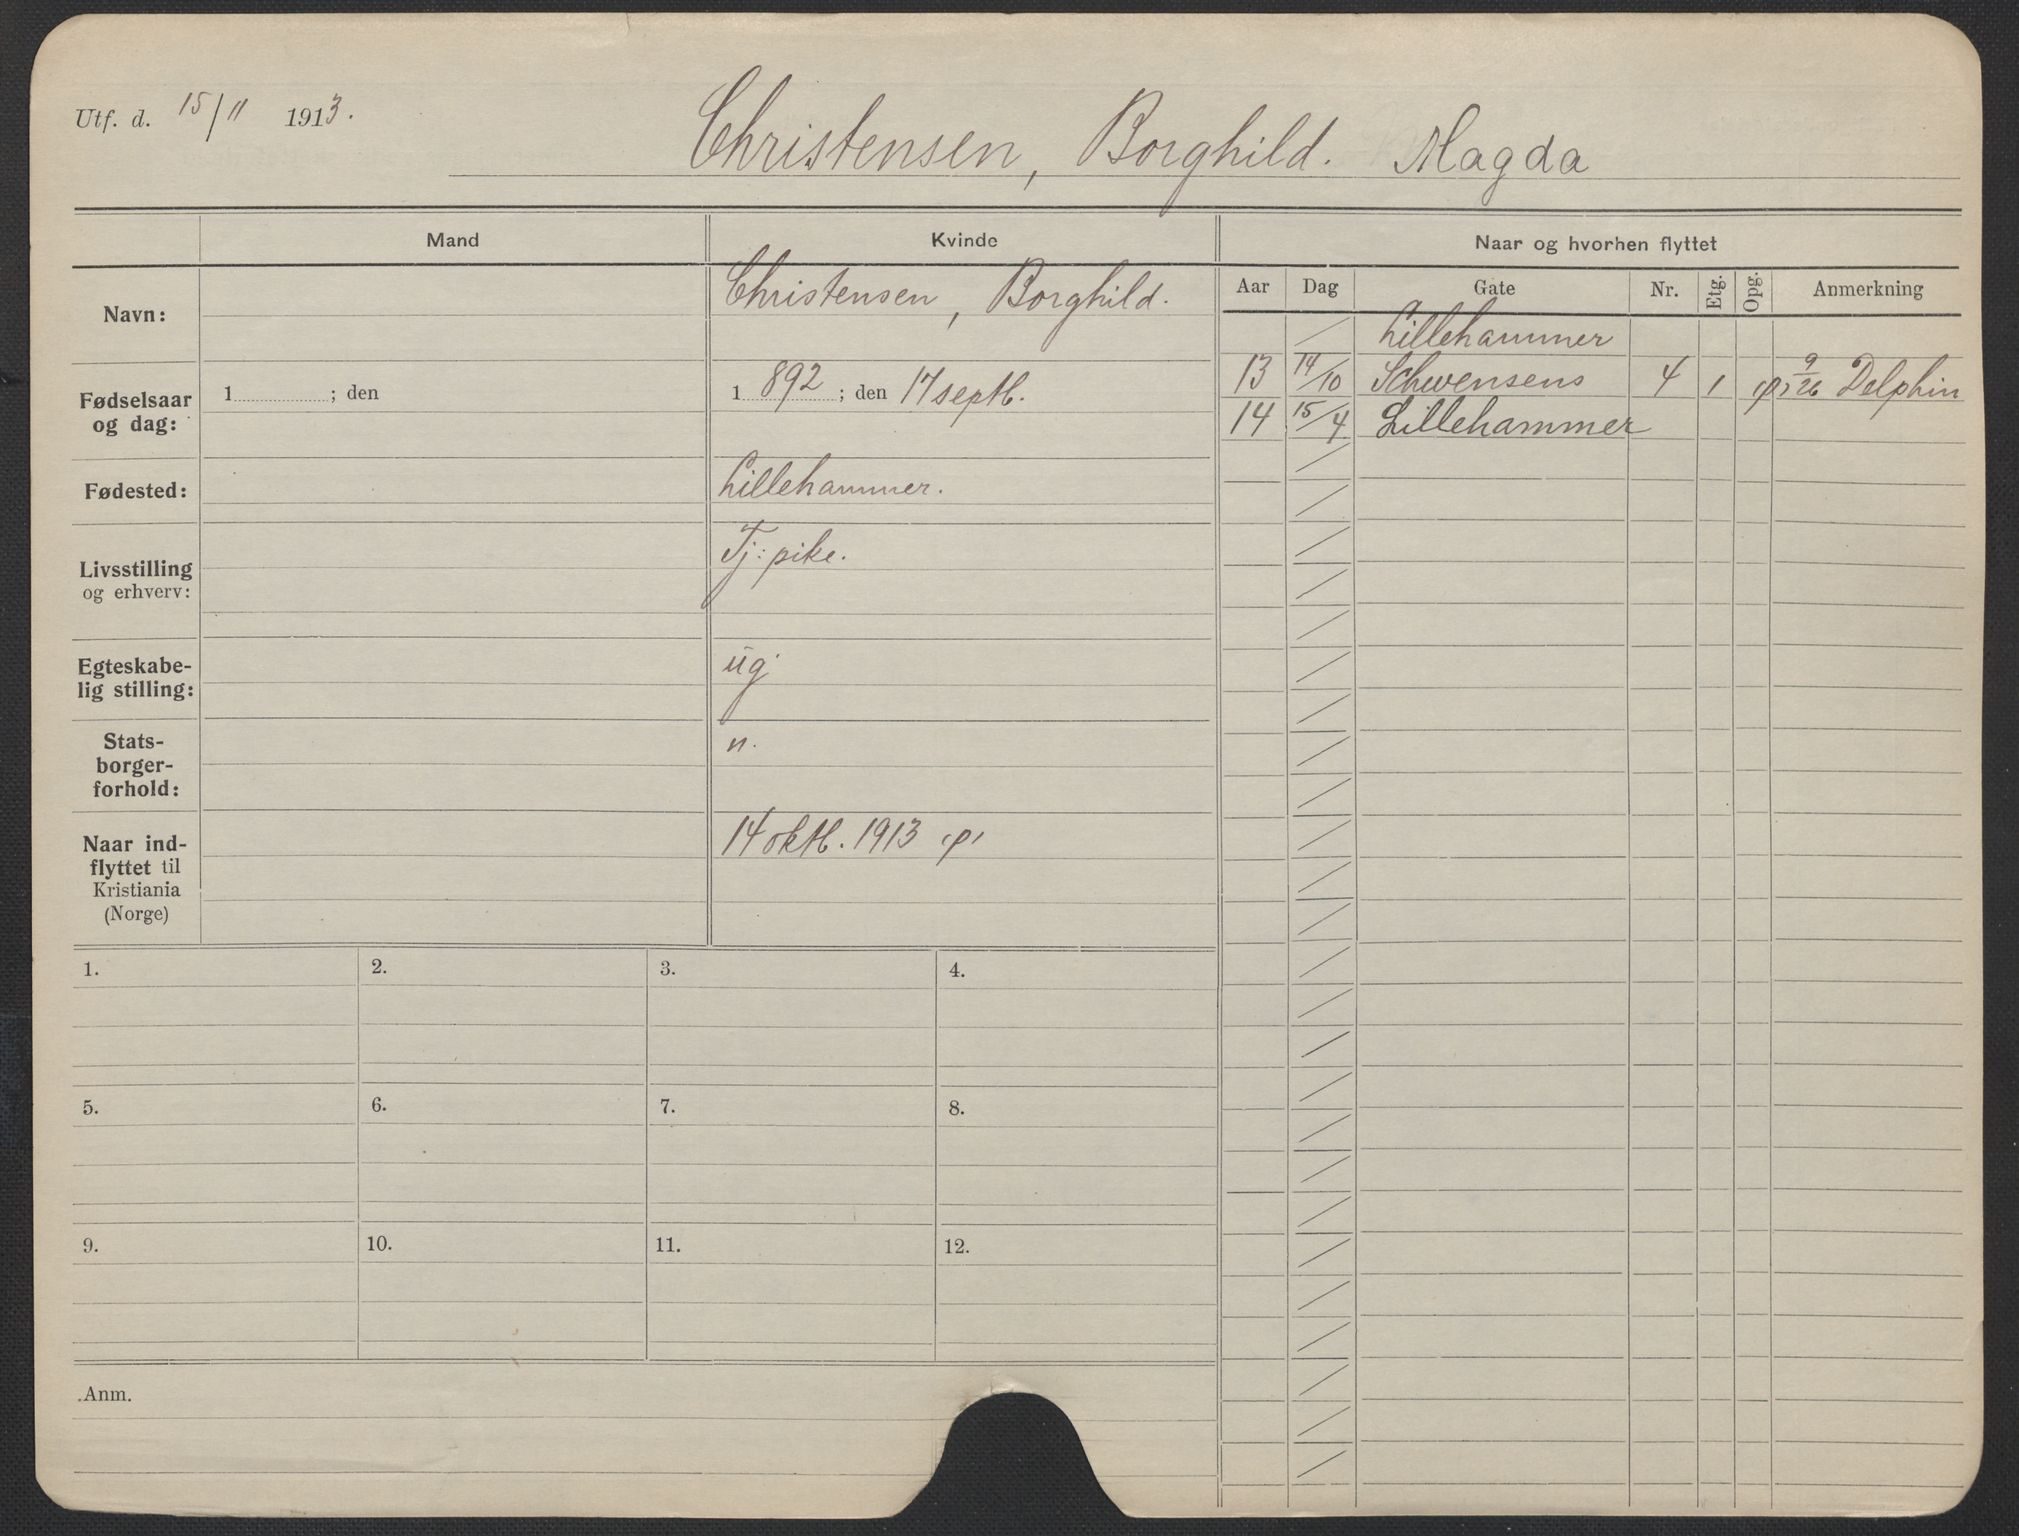 Utf. d. 15/11 1913.
Christensen, Borghild. Magda
Mand
Kvinde
Naar og hvorhen flyttet
Navn:
Christensen, Borghild.
Fødselsaar
og dag:
1 ; den
1 892 ; den 17 septb.
Fødested:
Lillehammer.
Livsstilling
og erhverv:
Tj: pike.
Egteskabe-
lig stilling:
ug
Stats-
borger-
forhold:
n.
Naar ind-
flyttet til
Kristiania
(Norge)
14 oktb. 1913
1. 2. 3. 4.
5. 6. 7. 8.
9. 10. 11. 12.
Anm.
Aar Dag Gate Nr. Etg. Opg. Anmerkning
Lillehammer
13 14/10 Schwensens 4 1 9/26 Delphin
14 15/4 Lillehammer